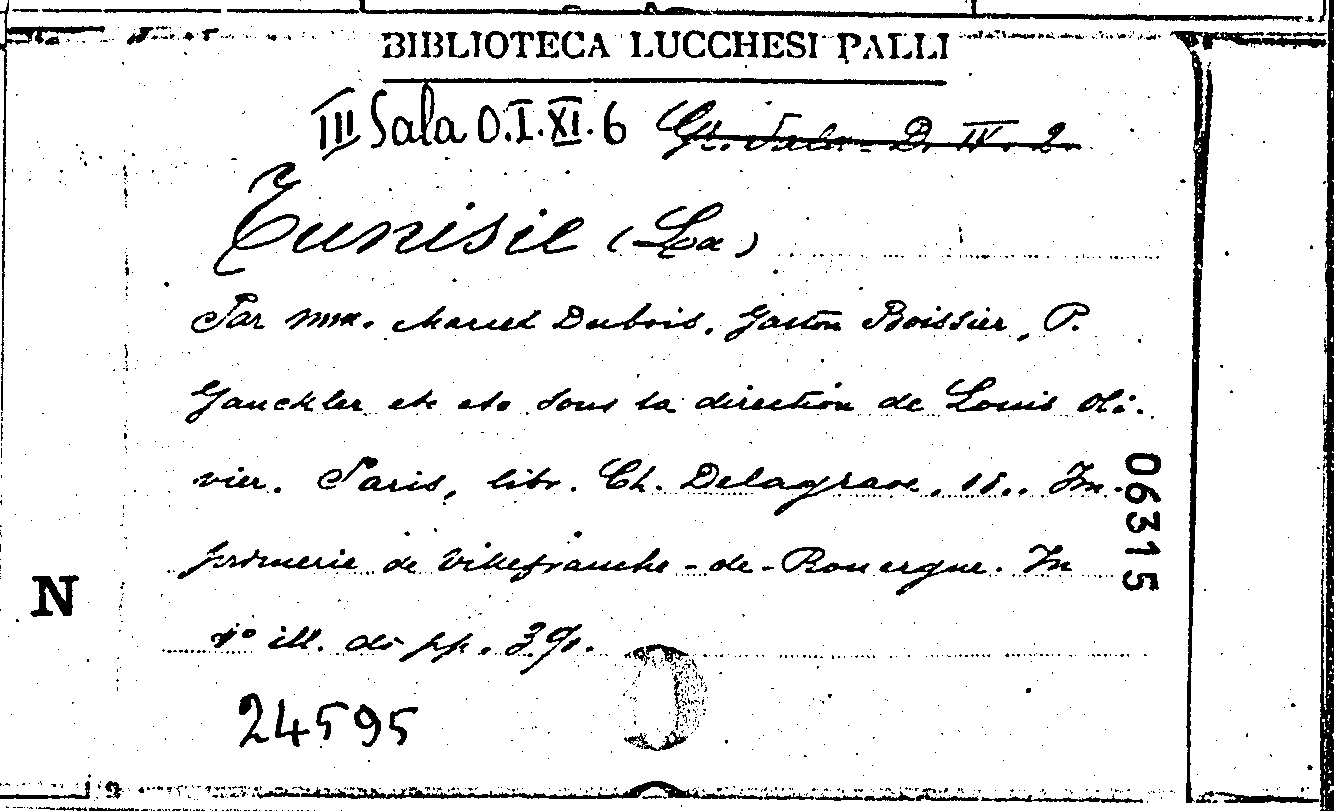 BIBLIOTECA LUCCHESI PALLI
III Sala O.I.XI.6 Gr. Sala - D. IV. 2.
Tunisie (La)
Par MM. Marcel Dubois, Gaston Boissier, P.
Gauckler etc etc sous la direction de Louis Oli-
vier. Paris, libr. Ch. Delagrave, Im-
primerie de Villefranche-de-Rouergue. In
4° ill. di pp.
24595
06315
N